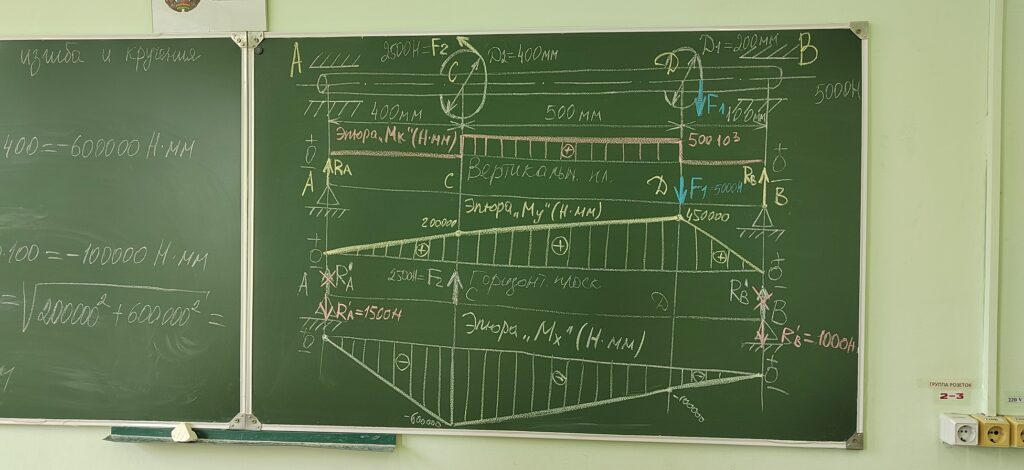 изгиба и кручения
400=-600000 Н·мм
·100=-100000 Н·мм
=√200000²+600000²=
м
A 2500Н=F2 C D1=400мм D D1=200мм B
5000Н
F1
400мм 500мм 100мм
Эпюра „Мк" (Н·мм) 500·10³
+ 0 - + 0 -
RA Вертикальн. пл. RB
A C D F1=5000Н B
Эпюра „Му" (Н·мм)
200000 450000
+ 0 - + 0 -
A R'A 2500Н=F2 C Горизонт. плоск. D R'B B
R'A=1500Н Эпюра „Мх" (Н·мм) R'B=1000Н
0 + 0 -
-600000 -100000
ГРУППА РОЗЕТОК
2-3
220 V